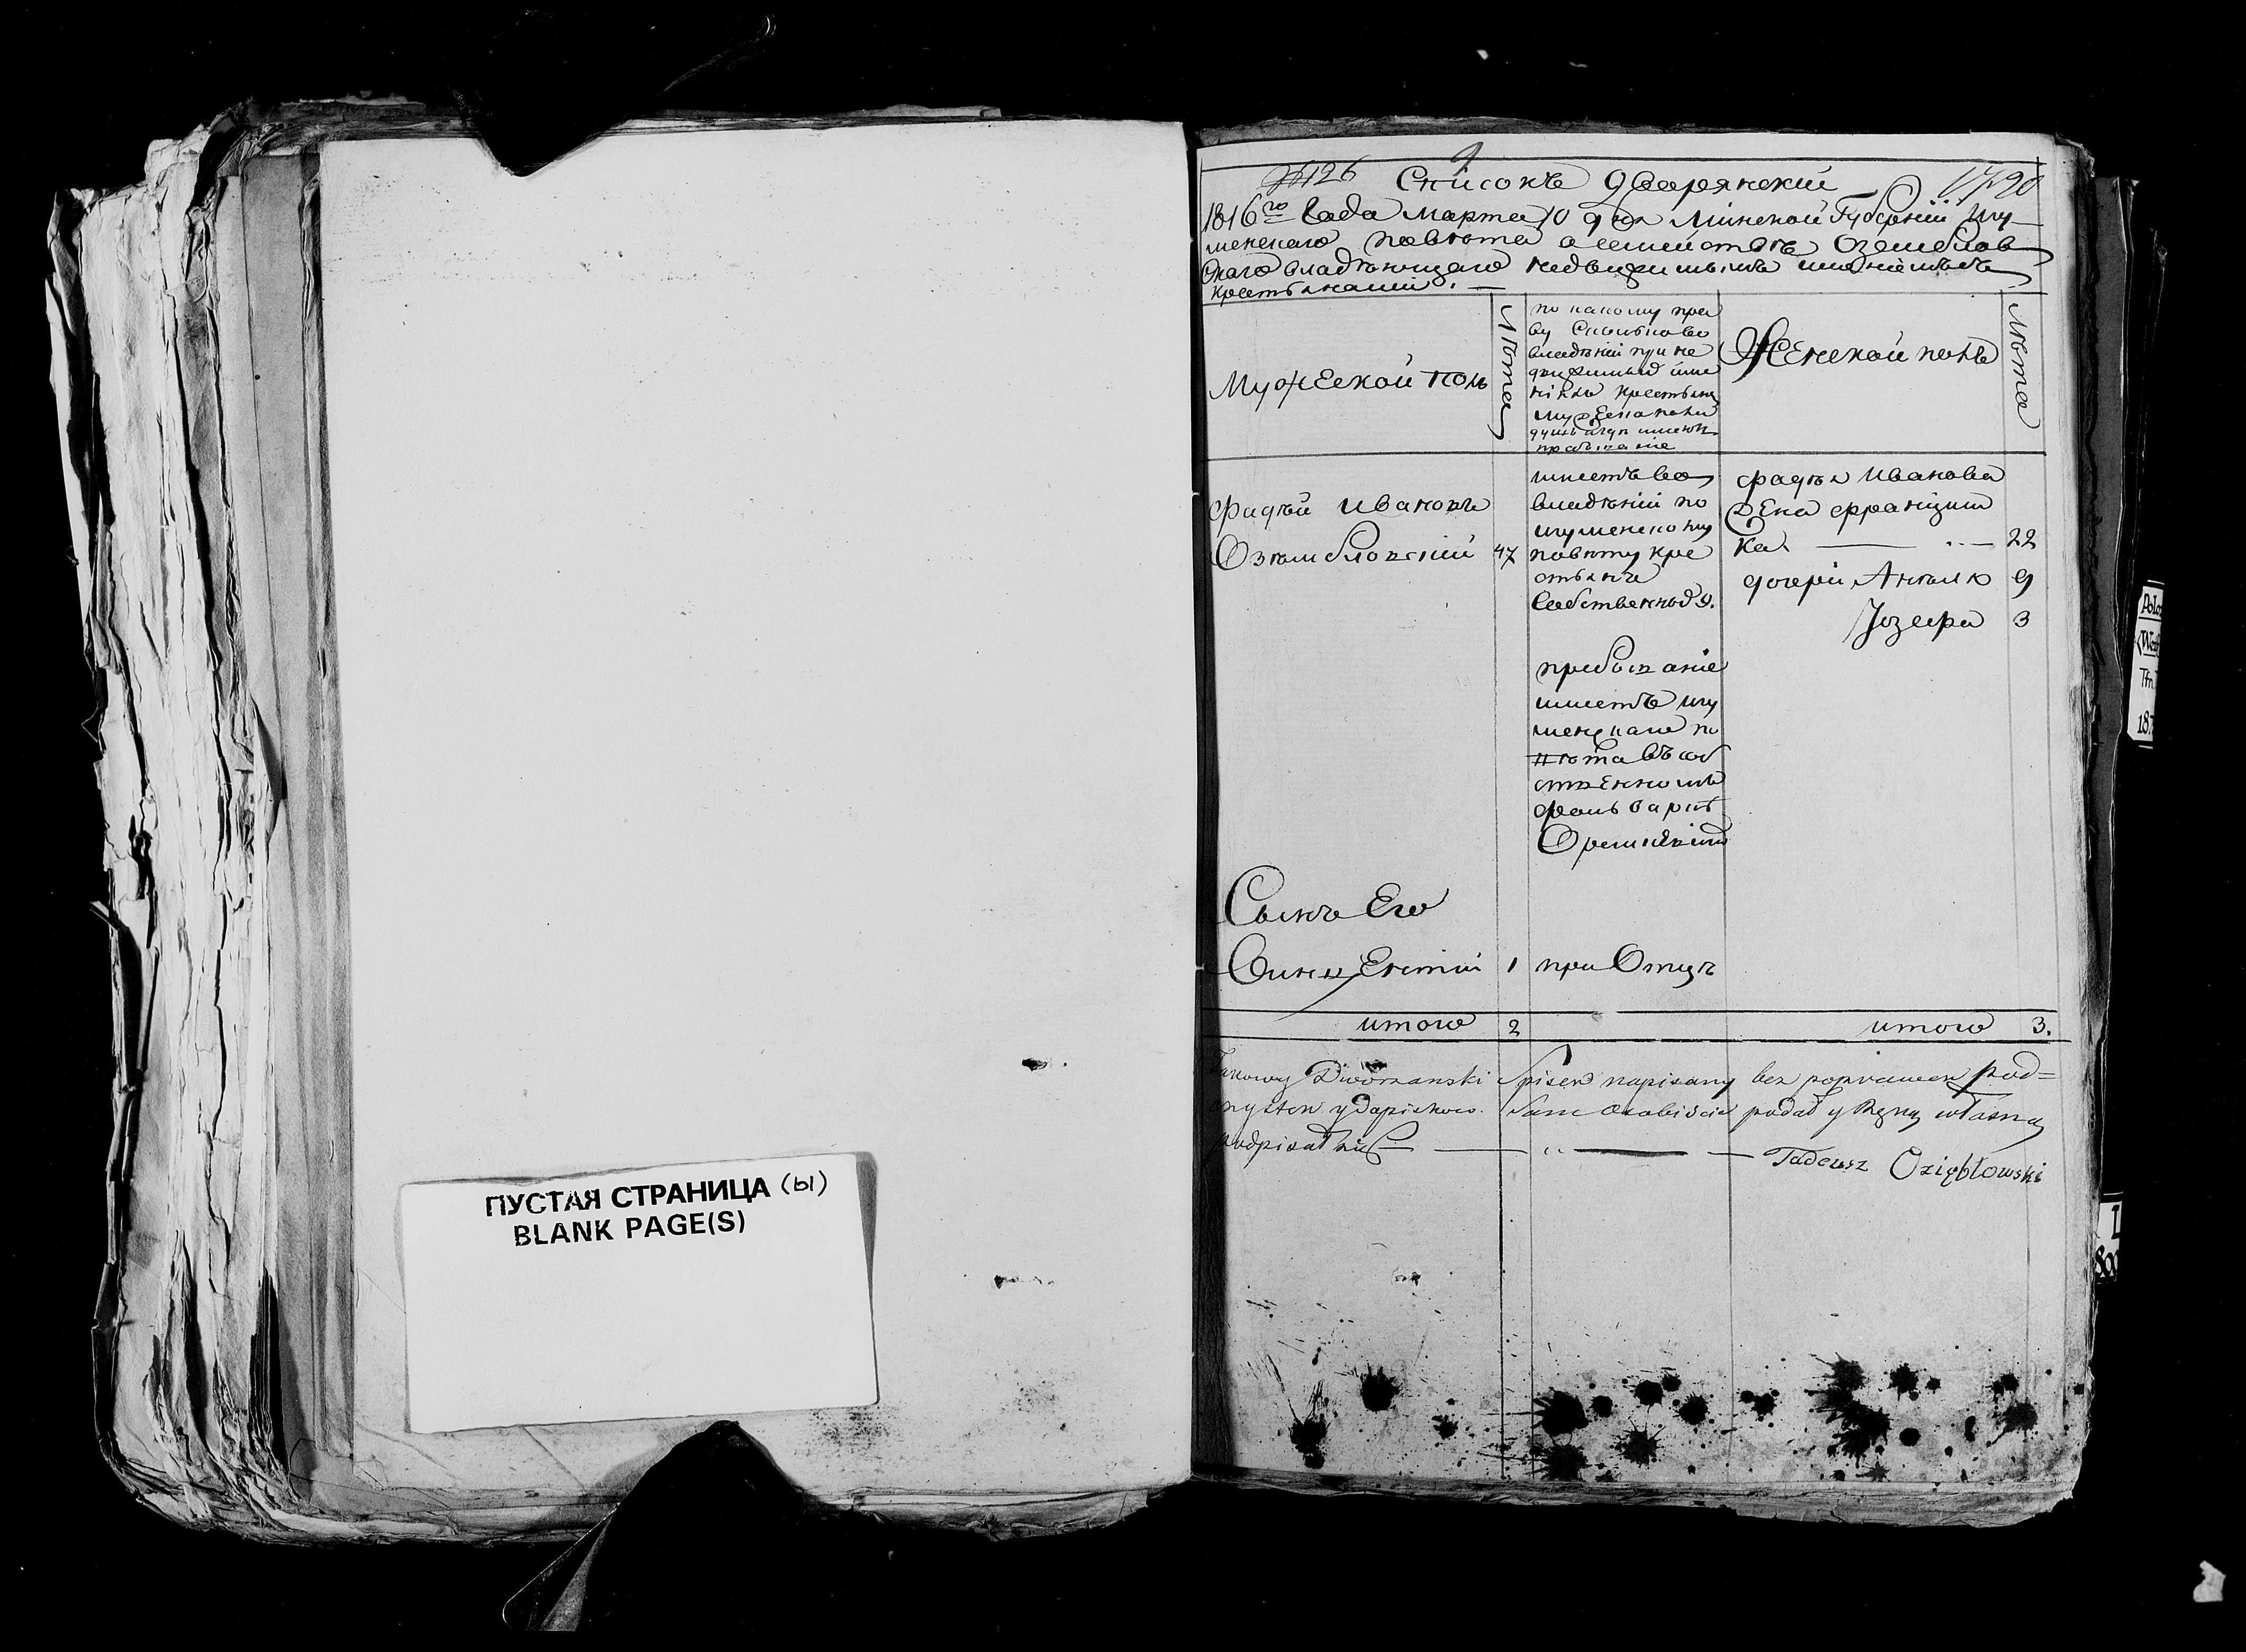 ПУСТАЯ СТРАНИЦА (ы)
BLANK PAGE(S)
№126
Списокъ Дворянский
1816го Года Марта 10 дня Минской Губерніи Игу-
менскаго повѣта о семействѣ Озембловскаго владѣющаго недвижимымъ имѣніемъ съ
крестьянами. —
Мужеской полъ
Лѣта
по какому пра
ву сколько во
владѣніи при не
движимыъ име
ніяхъ крестьянъ
мужеска пола
душъ и где имеютъ
пребываніе
Женской полъ
Лѣта
Фадѣй Ивановъ
Озѣмбловскій 47
имеетъ во
владѣніи по
игуменскому
повѣту кре
стьянъ
собственныхъ 9.
пребываніе
имеетъ игу
менскаго по
вѣта въ соб
ственномъ
фольварке
Фадѣя Иванова
жена Францишка — 22
дочери Анѣля 9
Іозефа 3
Сынъ Его
Винцентій 1
при Отцѣ
итого 2
итого 3.
Dworzanski Spisek napisany bez poprawek pod=
czystek y dapiskow Sam Osobiscie podał y Ręną własną
podpisał się —
Tadeusz Oziębłowski